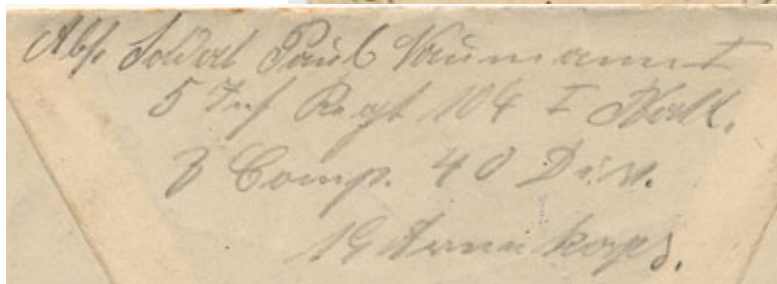 Abs. Soldat Paul Naumann I
5 Inf Regt 104 I Batl.
3 Comp. 40 Div.
19 Armeekorps.